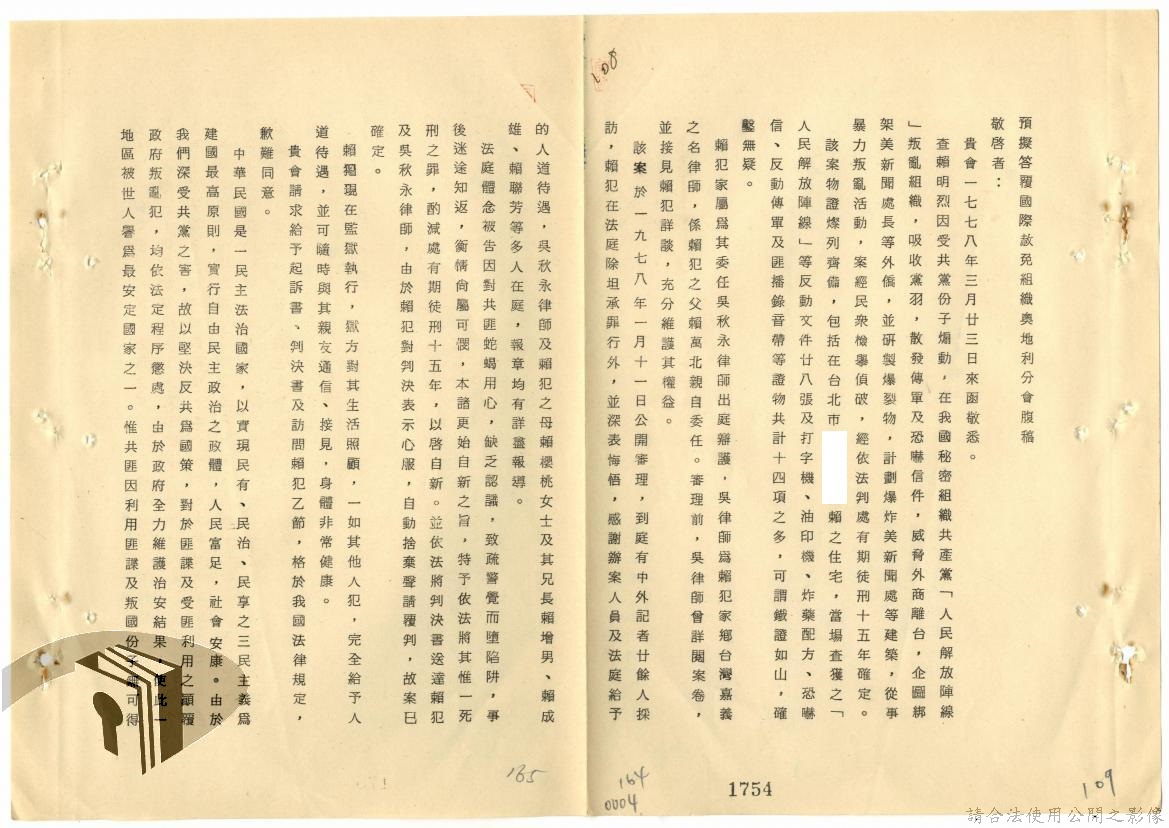 預擬答覆國際赦免組織奧地利分會腹稿
敬啓者：
貴會一七七八年三月廿三日來函敬悉。
查賴明烈因受共黨份子煽動，在我國秘密組織共產黨「人民解放陣線
」叛亂組織，吸收黨羽，散發傳單及恐嚇信件，威脅外商離台，企圖綁
架美新聞處長等外僑，並研製爆裂物，計劃爆炸美新聞處等建築，從事
暴力叛亂活動，案經民衆檢擧偵破，經依法判處有期徒刑十五年確定。
該案物證燦列齊備，包括在台北市 賴之住宅，當場查獲之「
人民解放陣線」等反動文件廿八張及打字機、油印機、炸藥配方、恐嚇
信、反動傳單及匪播錄音帶等證物共計十四項之多，可謂鐵證如山，確
鑿無疑。
賴犯家屬爲其委任吳秋永律師出庭辯護，吳律師爲賴犯家鄉台灣嘉義
之名律師，係賴犯之父賴萬北親自委任。審理前，吳律師曾詳閱案卷，
並接見賴犯詳談，充分維護其權益。
該案於一九七八年一月十一日公開審理，到庭有中外記者廿餘人採
訪，賴犯在法庭除坦承罪行外，並深表悔悟，感謝辦案人員及法庭給予
的人道待遇，吳秋永律師及賴犯之母賴櫻桃女士及其兄長賴增男、賴成
雄、賴聯芳等多人在庭，報章均有詳盡報導。
法庭體念被告因對共匪蛇蝎用心，缺乏認識，致疏警覺而墮陷阱，事
後迷途知返，衡情尙屬可憫，本諸更始自新之旨，特予依法將其惟一死
刑之罪，酌減處有期徒刑十五年，以啓自新。並依法將判決書送達賴犯
及吳秋永律師，由於賴犯對判決表示心服，自動捨棄聲請覆判，故案已
確定。
賴犯現在監獄執行，獄方對其生活照顧，一如其他人犯，完全給予人
道待遇，並可隨時與其親友通信、接見，身體非常健康。
貴會請求給予起訴書、判決書及訪問賴犯乙節，格於我國法律規定，
歉難同意。
中華民國是一民主法治國家，以實現民有、民治、民享之三民主義爲
建國最高原則，實行自由民主政治之政體，人民富足，社會安康。由於
我們深受共黨之害，故以堅決反共爲國策，對於匪諜及受匪利用之顚覆
政府叛亂犯，均依法定程序懲處，由於政府全力維護治安結果，使此一
地區被世人署爲最安定國家之一。惟共匪因利用匪諜及叛國份子 可得
108
109
164
0004
1754
165
請合法使用公開之影像